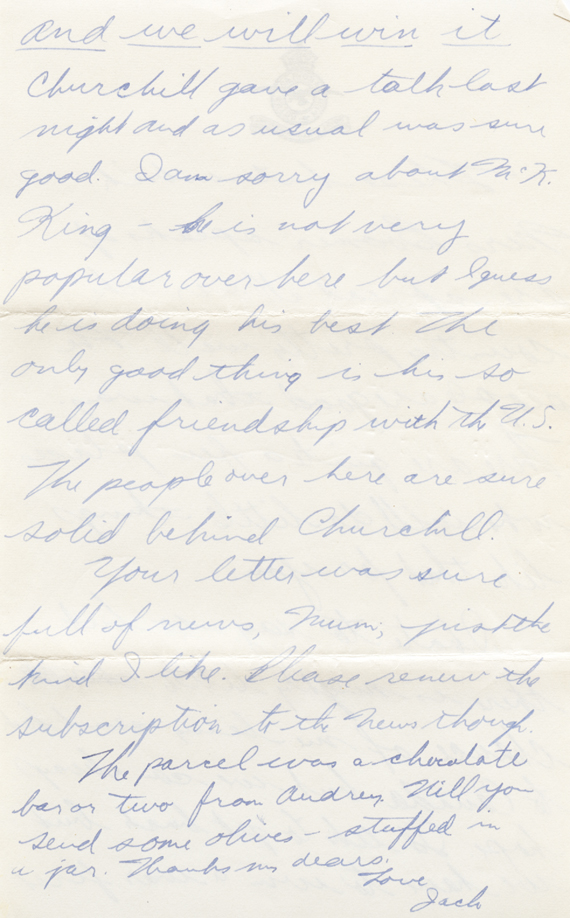 and we will win it
Churchill gave a talk last
night and as usual was sure
good. I am sorry about McK.
King – he is not very
popular over here but I guess
he is doing his best. The
only good thing is his so
called friendship with the U.S.
The people over here are sure
solid behind Churchill.
Your letter was sure
full of news, Mum, just the
kind I like. Please renew the
subscription to the News though.
The parcel was a chocolate
bar or two from Audrey. Will you
send some olives – stuffed in
a jar. Thanks my dears.
Love
Jack